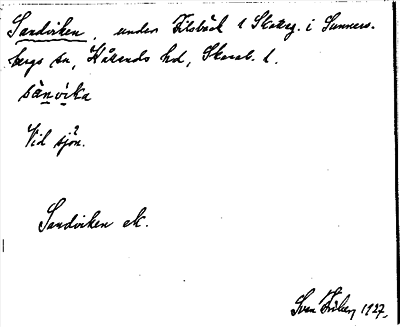 Sandviken, under Filsbäck 1 Skattg. i Sunners-
bergs sn, Kållands hd, Skarab. l.
sànvika
Vid sjön.
Sandviken ek.
Sven Ekberg 1927.